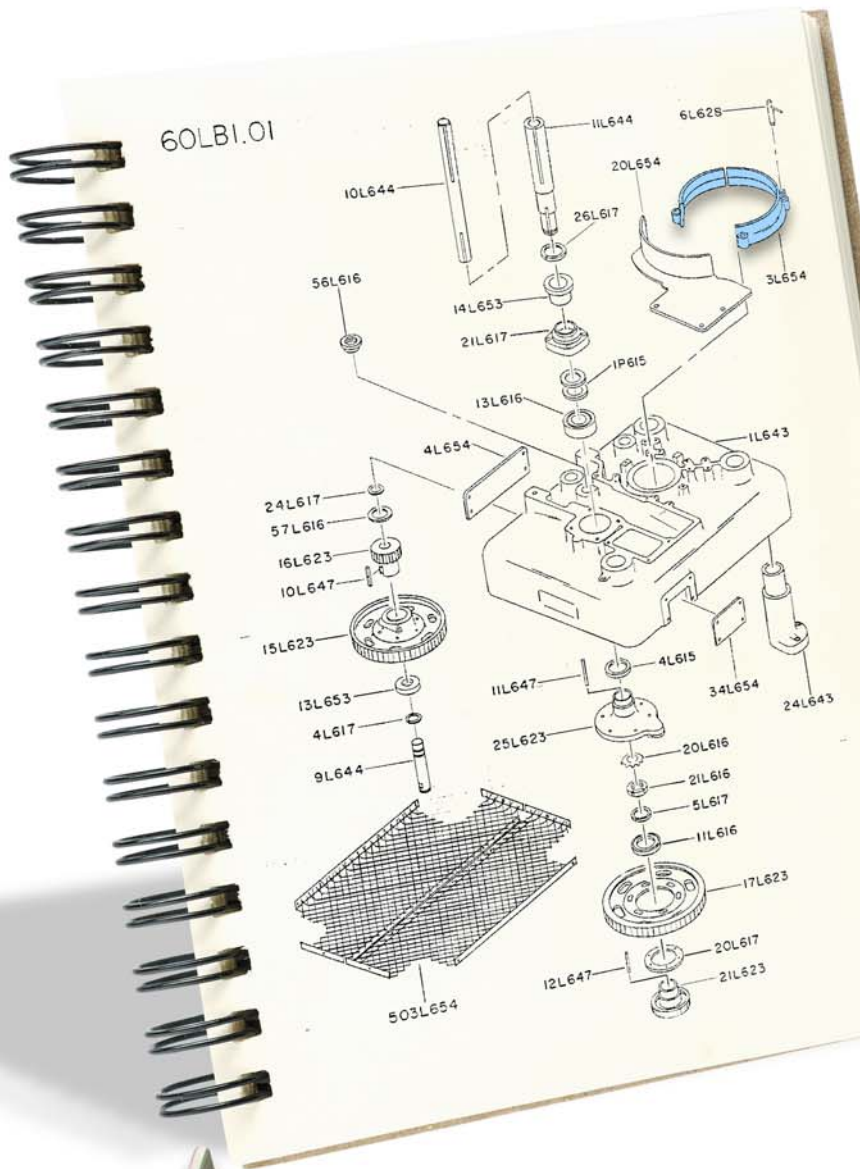 60LB1.01
11L644
6L628
20L654
10L644
26L617
56L616
3L654
14L653
21L617
1P615
13L616
4L654
1L643
24L617
57L616
16L623
10L647
15L623
4L615
11L647
13L653
34L654
24L643
4L617
25L623
20L616
9L644
21L616
5L617
11L616
17L623
20L617
12L647
21L623
503L654